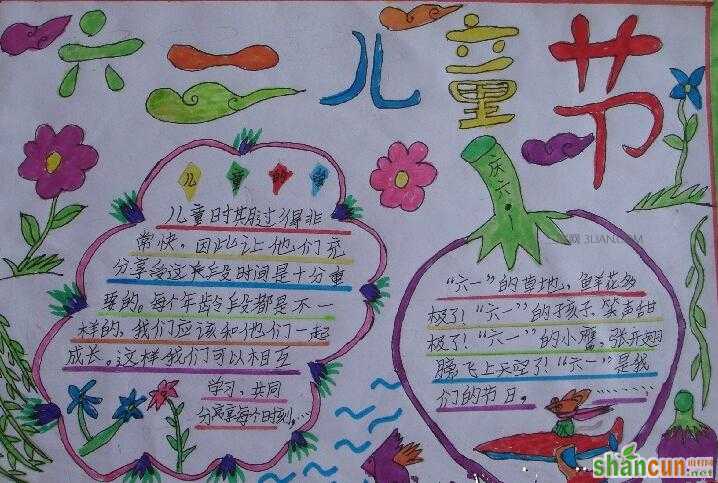 六一儿童节
儿童时期
儿童时期过得非
常快，因此让他们充
分享受这段时间是十分重
要的。每个年龄段都是不一
样的，我们应该和他们一起
成长。这样我们可以相互
学习，共同
分享每个时刻……
庆六一！
“六一”的草地，鲜花多
极了！“六一”的孩子，笑声甜
极了！“六一”的小鹰，张开翅
膀飞上天空了！“六一”是我
们的节日。…………
3LIAN.COM
shancun
.net